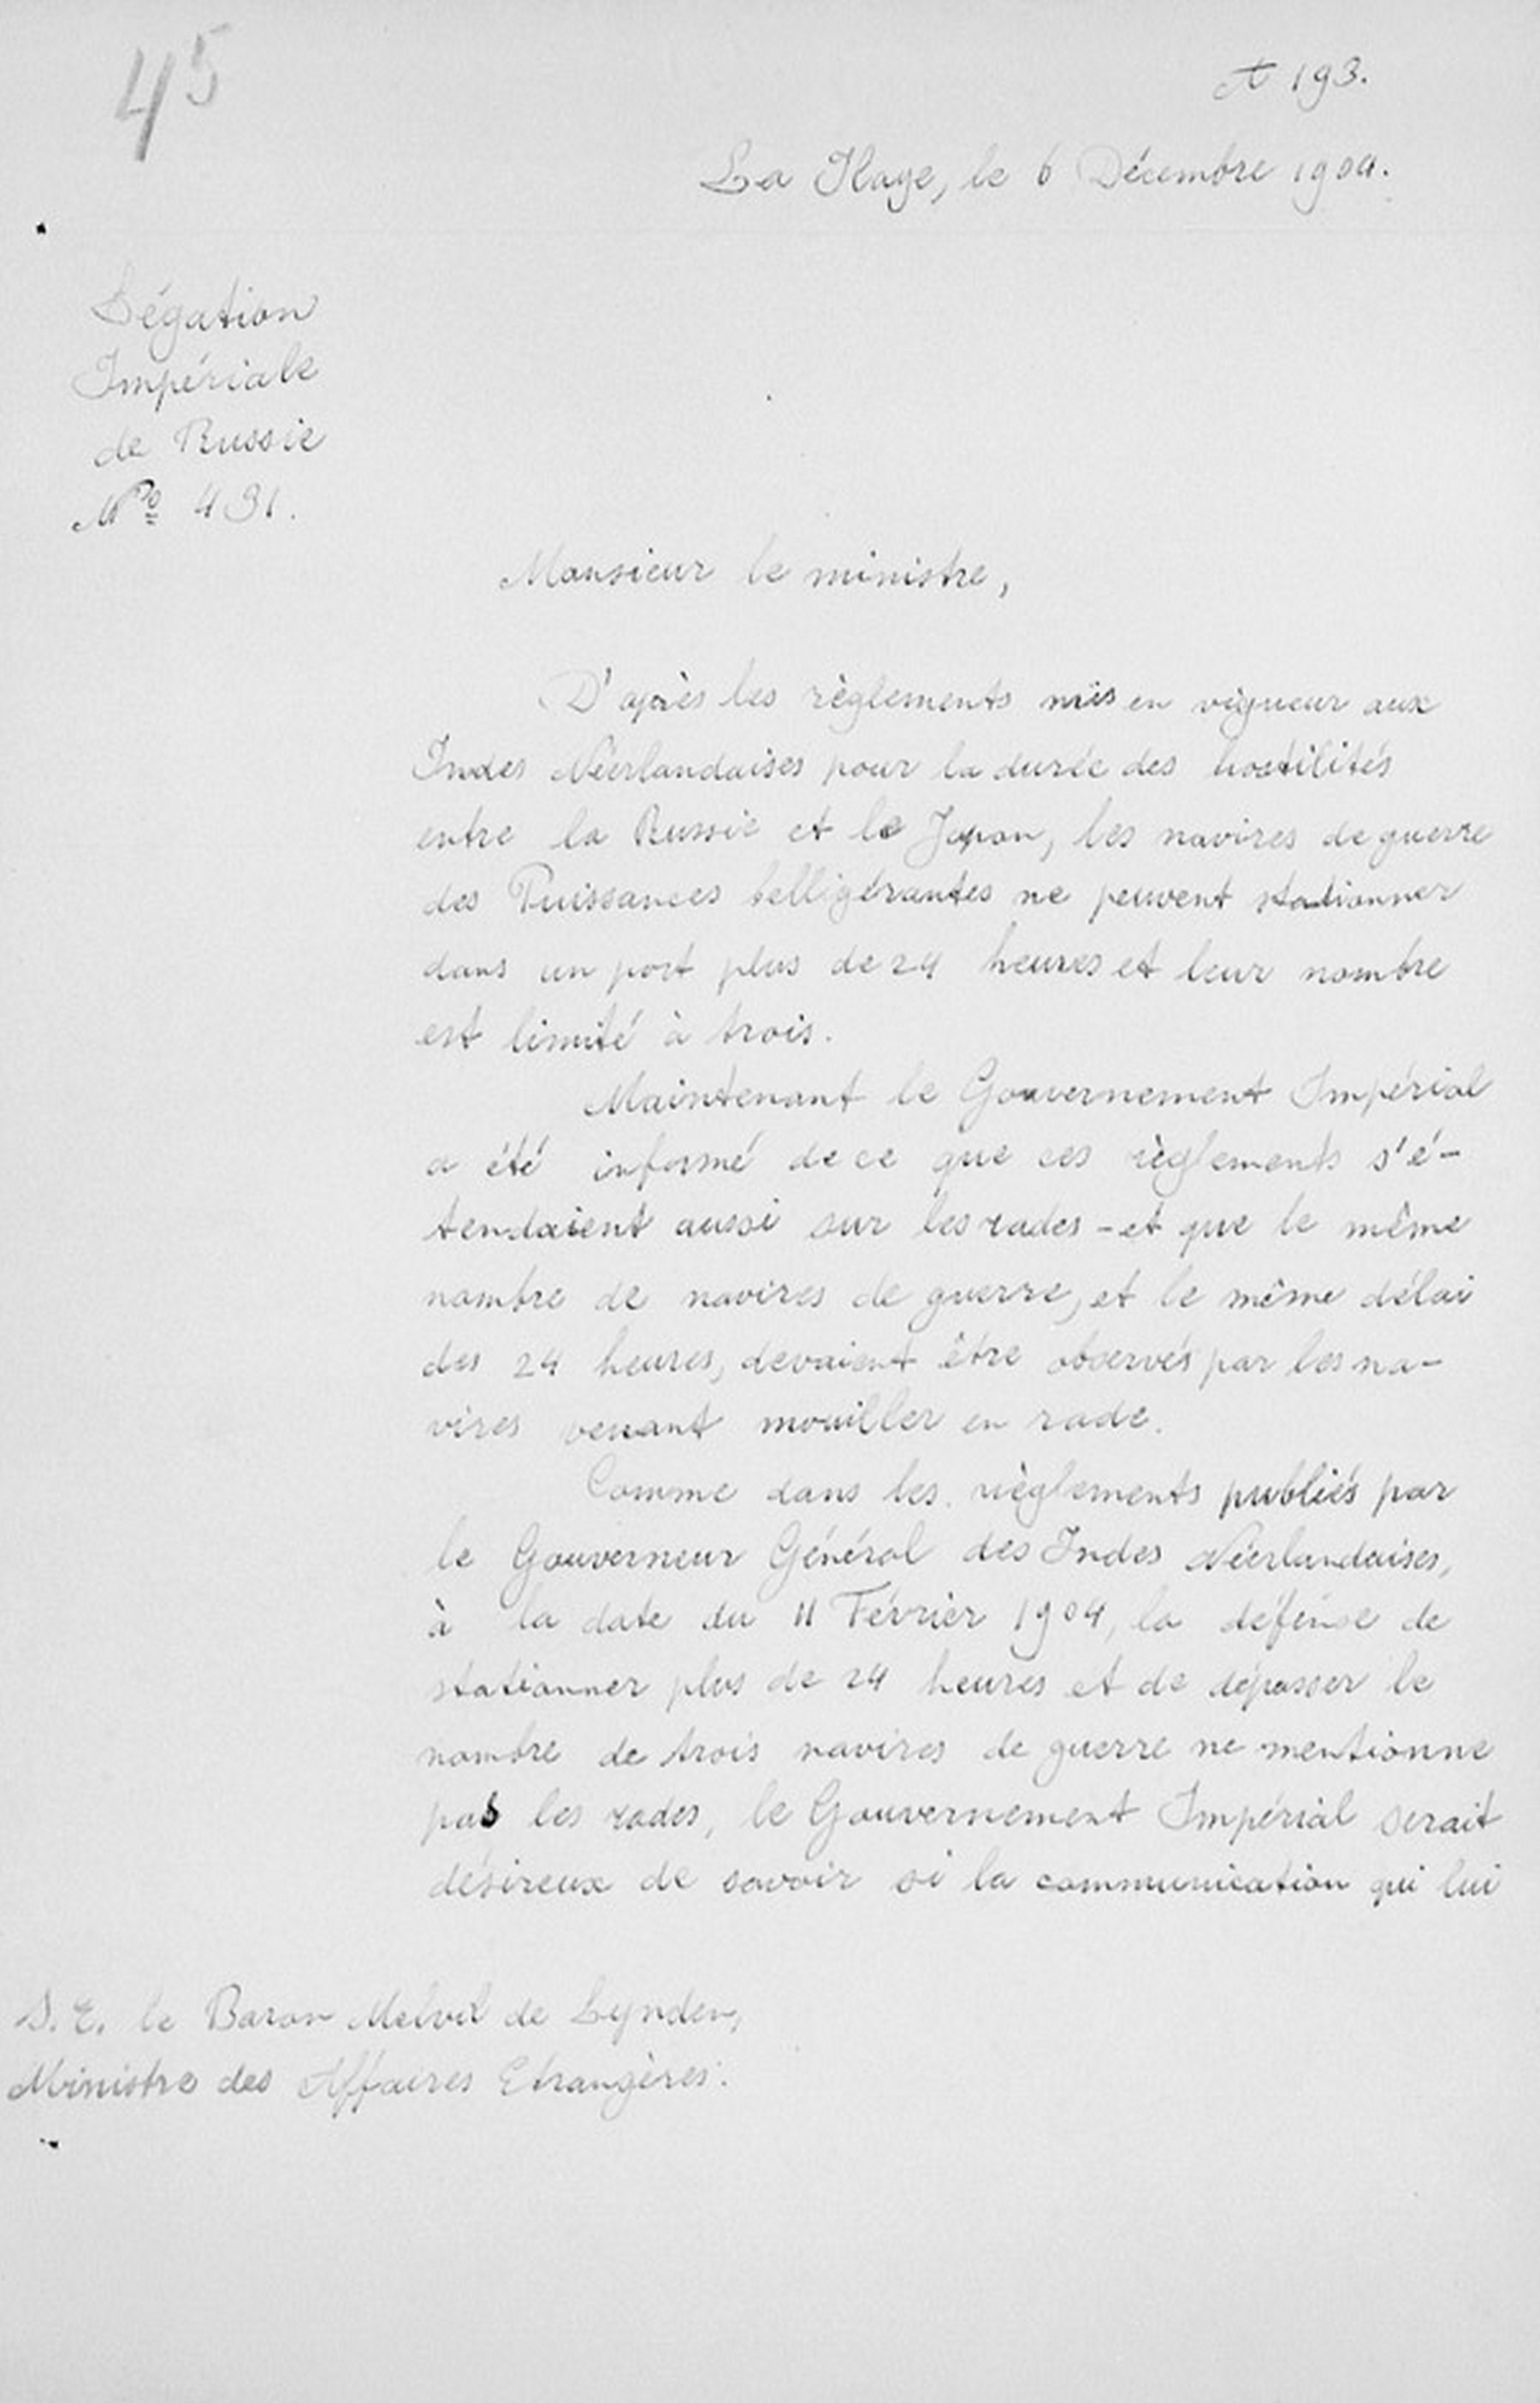 45
A 193.
La Haye, le 6 Décembre 1904.
Légation
Impériale
de Russie
Nº 431.
Monsieur le ministre,
D'après les règlements mis en vigueur aux
Indes Néerlandaises pour la durée des hostilités
entre la Russie et le Japon, les navires de guerre
des Puissances belligérantes ne peuvent stationner
dans un port plus de 24 heures et leur nombre
est limité à trois.
Maintenant le Gouvernement Impérial
a été informé de ce que ces règlements s'é-
tendaient aussi sur les rades - et que le même
nombre de navires de guerre, et le même délai
des 24 heures, devaient être observés par les na-
vires venant mouiller en rade.
Comme dans les règlements publiés par
le Gouverneur Général des Indes Néerlandaises,
à la date du 11 Février 1904, la défense de
stationner plus de 24 heures et de dépasser le
nombre de trois navires de guerre ne mentionne
pas les rades, le Gouvernement Impérial serait
désireux de savoir si la communication qui lui
S. E. le Baron Melvil de Lynden,
Ministre des Affaires Etrangères.